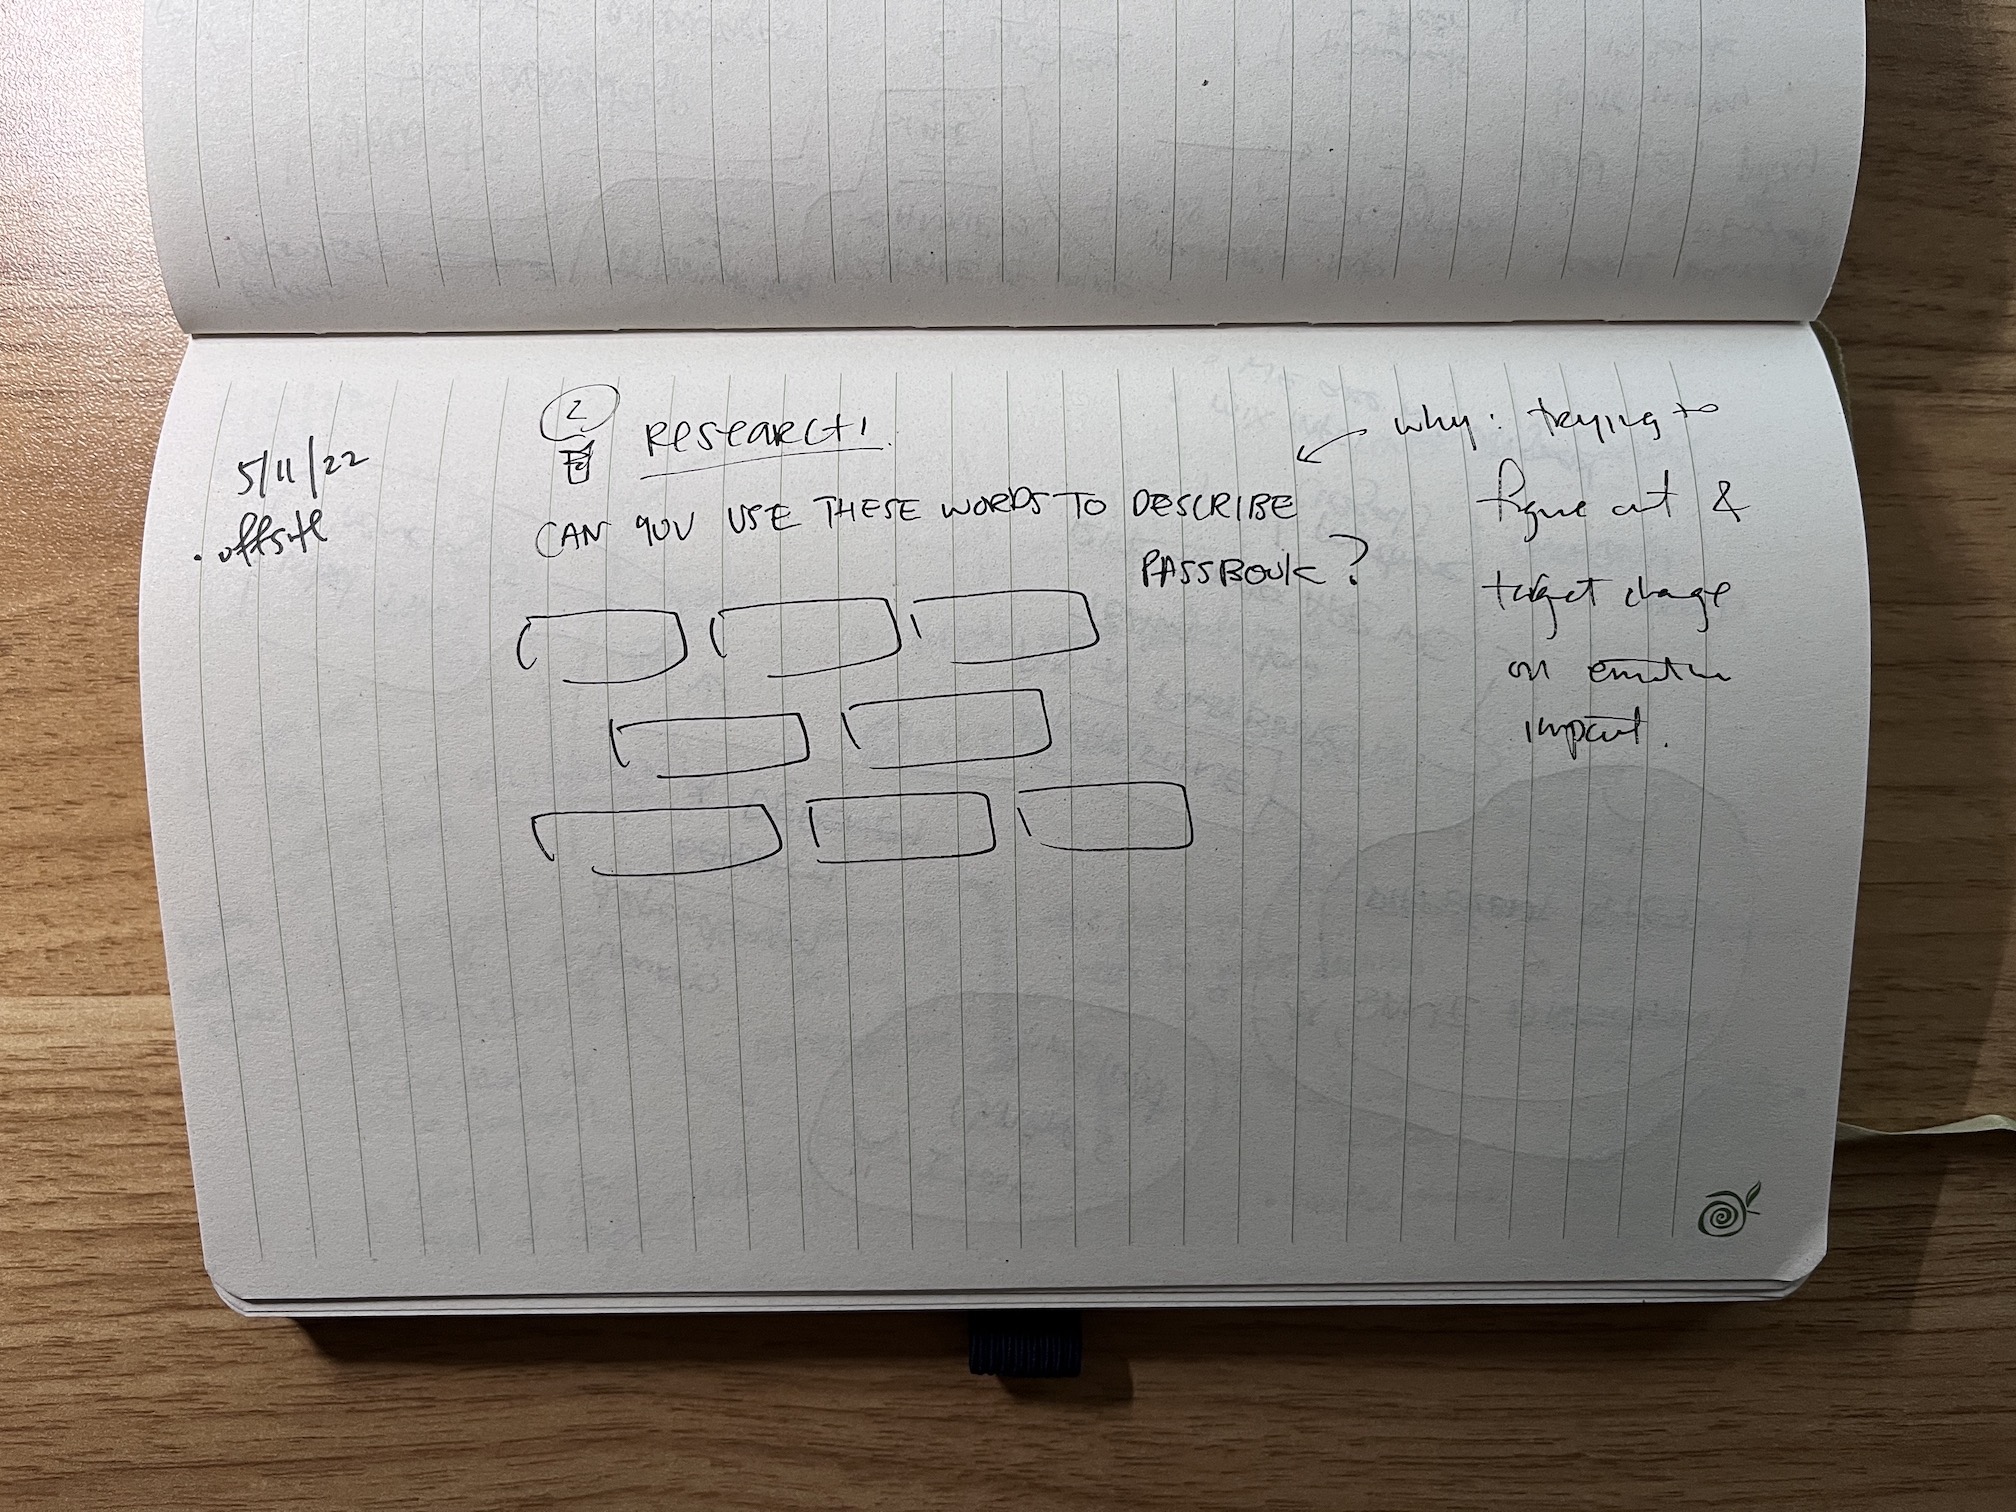 5/11/22
. offsite
2
RESEARCH
CAN YOU USE THESE WORDS TO DESCRIBE
PASSBOOK?
why: trying to
figure out &
target change
on emotion
impact.